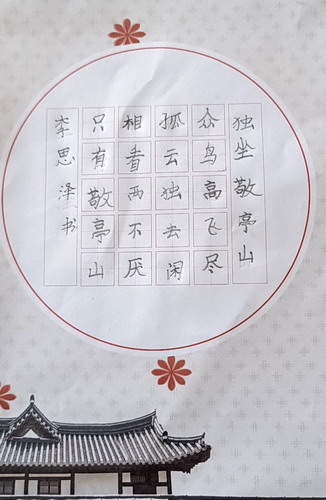 独坐敬亭山
众鸟高飞尽
孤云独去闲
相看两不厌
只有敬亭山
李思泽书